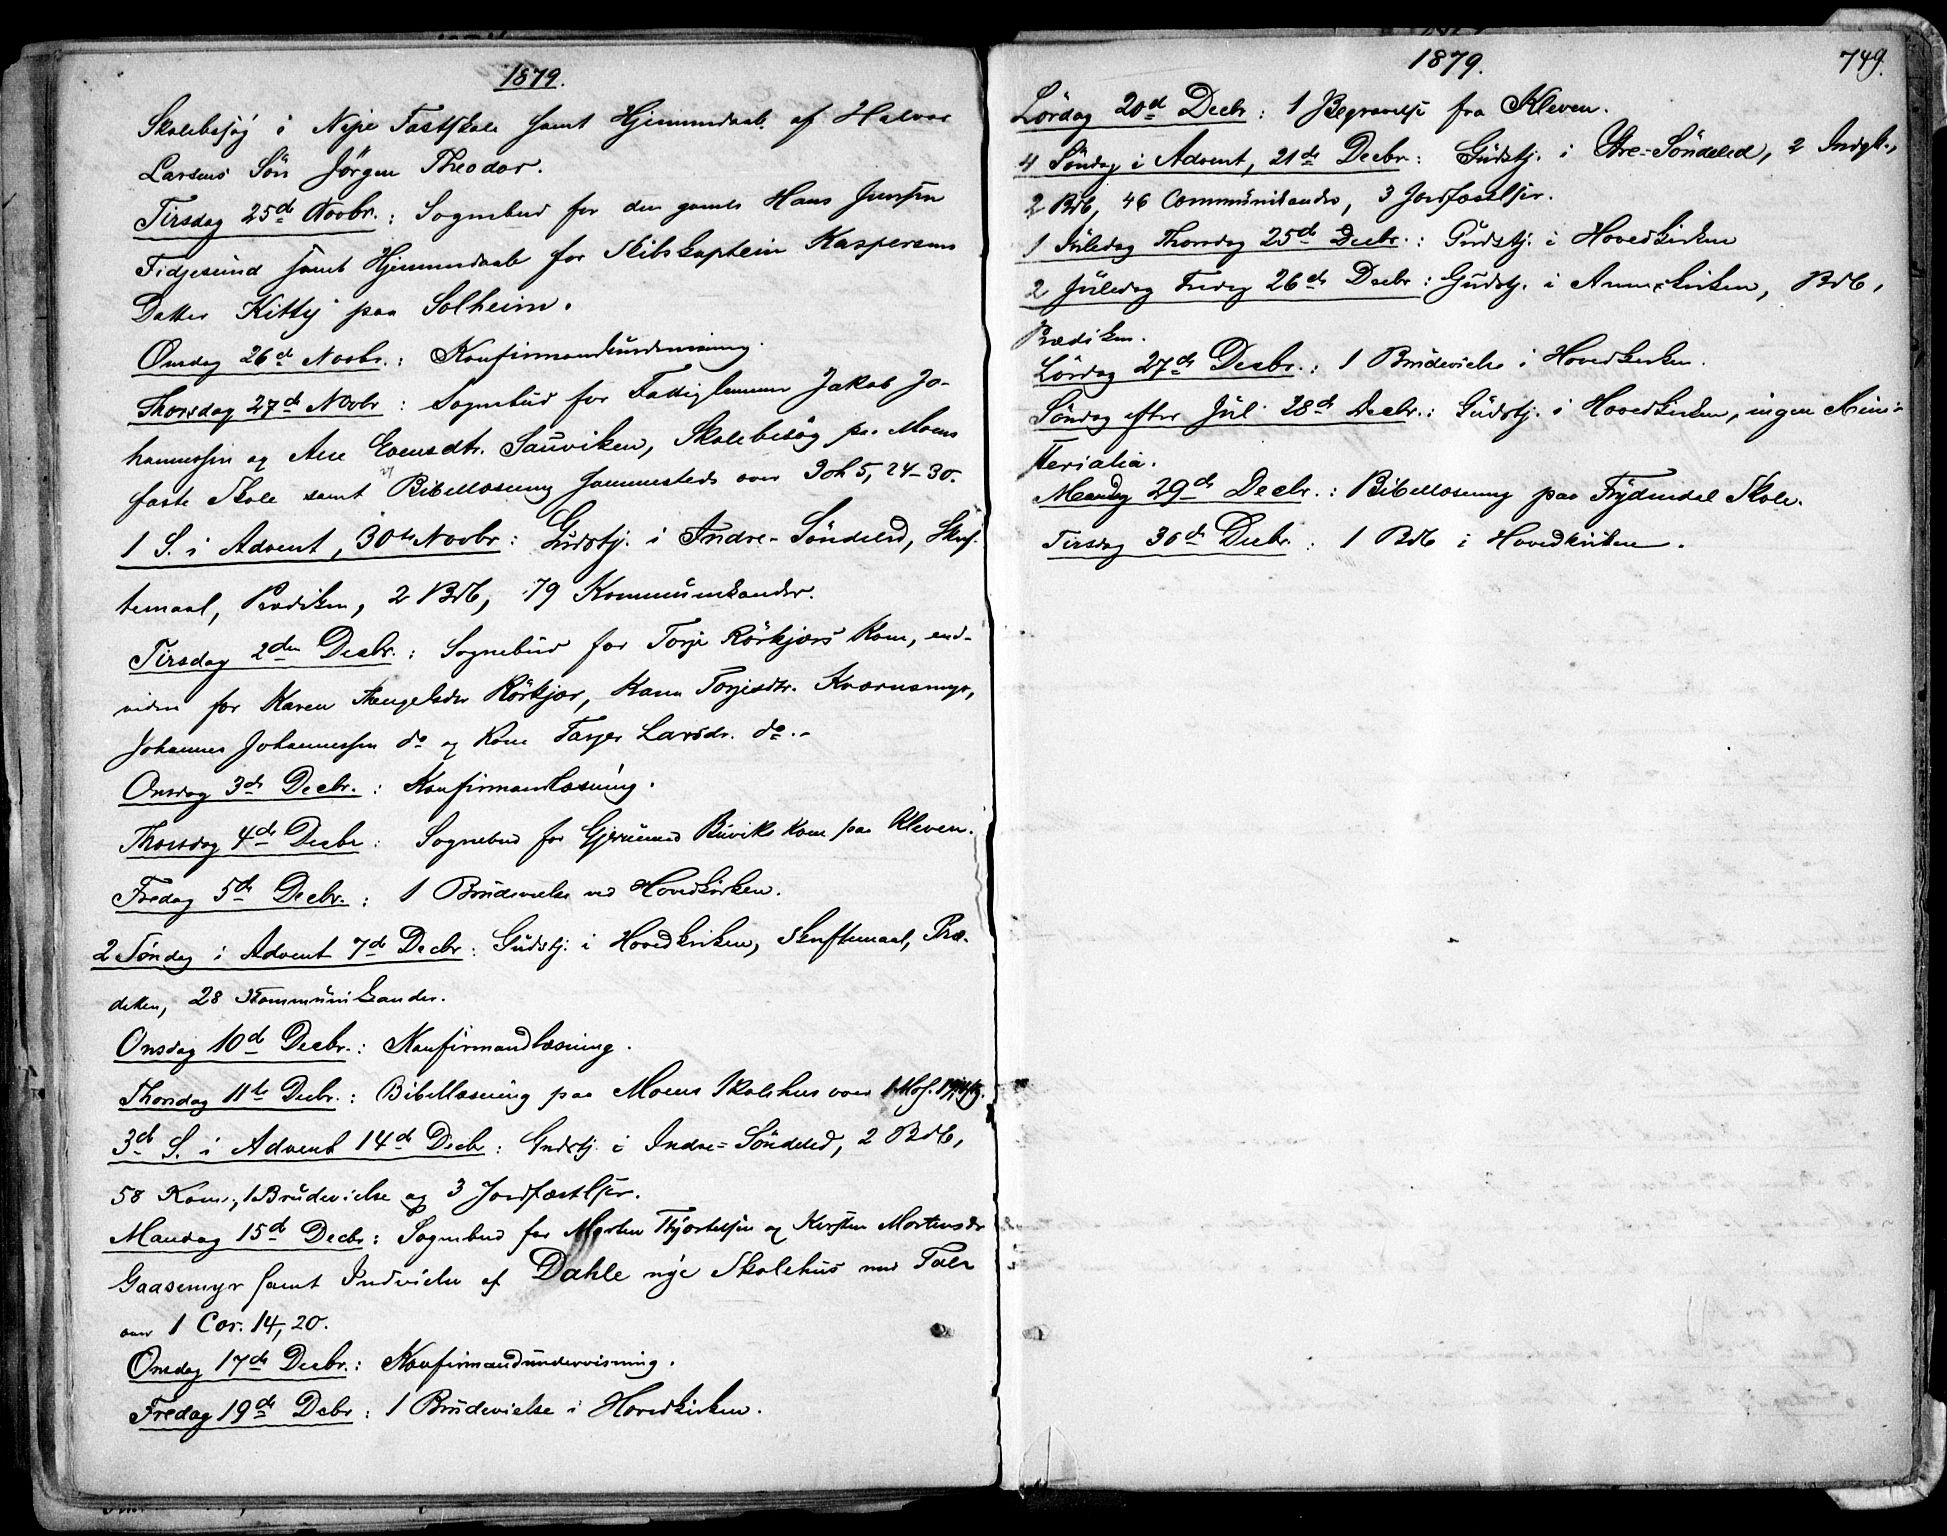 1879.
Skolebesøg i Nipe Fastskole samt Hjemmedaab af Halvor
Larsens Søn Jørgen Theodor.
Tirsdag 25de Novbr.: Sognebud for den gamle Hans Jensen
Fidjesund samt Hjemmedaab for Skibskaptein Kaspersens
Datter Kitty paa Solheim.
Onsdag 26de Novbr.: Konfirmandundervisning.
Thorsdag 27de Novbr: Sognebud for Fattiglemmer Jakob Jo-
hannessen og Ane Evensdtr. Sauviken, Skolebesøg paa Moens
faste Skole samt Bibellæsning sammesteds over Joh 5, 24-30.
1 S. i Advent, 30te Novbr: Gudstj. i Indre-Søndeled, Skrif-
temaal, Prædiken, 2 Bdb, 79 Kommunikander.
Tirsdag 2den Decbr.: Sognebud for Torje Rørkjærs Kone, end-
videre for Karen Rørkjær, Karen Torjesdtr. Kværnsmyr,
Johannes Johannessen do og Kone Larsdr. do.
Onsdag 3de Decbr.: Konfirmandlæsning.
Thorsdag 4de Decbr: Sognebud for Gjerumd Buviks Kone paa Kleven.
Fredag 5de Decbr.: 1 Brudevielse ved Hovedkirken.
2 Søndag i Advent 7de Decbr: Gudstj. i Hovedkirken, Skriftemaal, Præ-
diken, 28 Kommunikander.
Onsdag 10de Decbr.: Konfirmandlæsning.
Thorsdag 11te Decbr.: Bibellæsning paa Moens Skolehus over 1 Mos.
3de S. i Advent 14de Decbr: Gudstj. i Indre-Søndeled, 2 Bdb,
58 Kom., 1 Brudevielse og 3 Jordfæstelser.
Mandag 15de Decbr: Sognebud for Morten Thjøstelsen og Kirsten Mortensdr
Gaasemyr samt Indvielse af Dahle nye Skolehus med Tale
over 1 Cor. 14, 20.
Onsdag 17de Decbr.: Konfirmandundervisning.
Fredag 19de Debr: 1 Brudevielse i Hovedkirken.
1879.
749.
Lördag 20de Decbr: 1 Begravelse fra Kleven.
4 Søndag i Advent, 21de Decbr: Gudstj. i Ytre-Søndeled, 2 Indgl.,
2 Bdb, 46 Communikander, 3 Jordfæstelser.
1 Juledag Thorsdag 25de Decbr.: Gudstj. i Hovedkirken
2 Juledag Fredag 26de Decbr: Gudstj. i Annexkirken, Bdb,
Prædiken.
Lördag 27de Decbr.: 1 Brudevielse i Hovedkirken.
Søndag efter Jul 28de Decbr.: Gudstj. i Hovedkirken, ingen Mini-
sterialia.
Mandag 29de Decbr.: Bibellæsning paa Frydendal Skole.
Tirsdag 30de Decbr.: 1 Bdb i Hovedkirken.